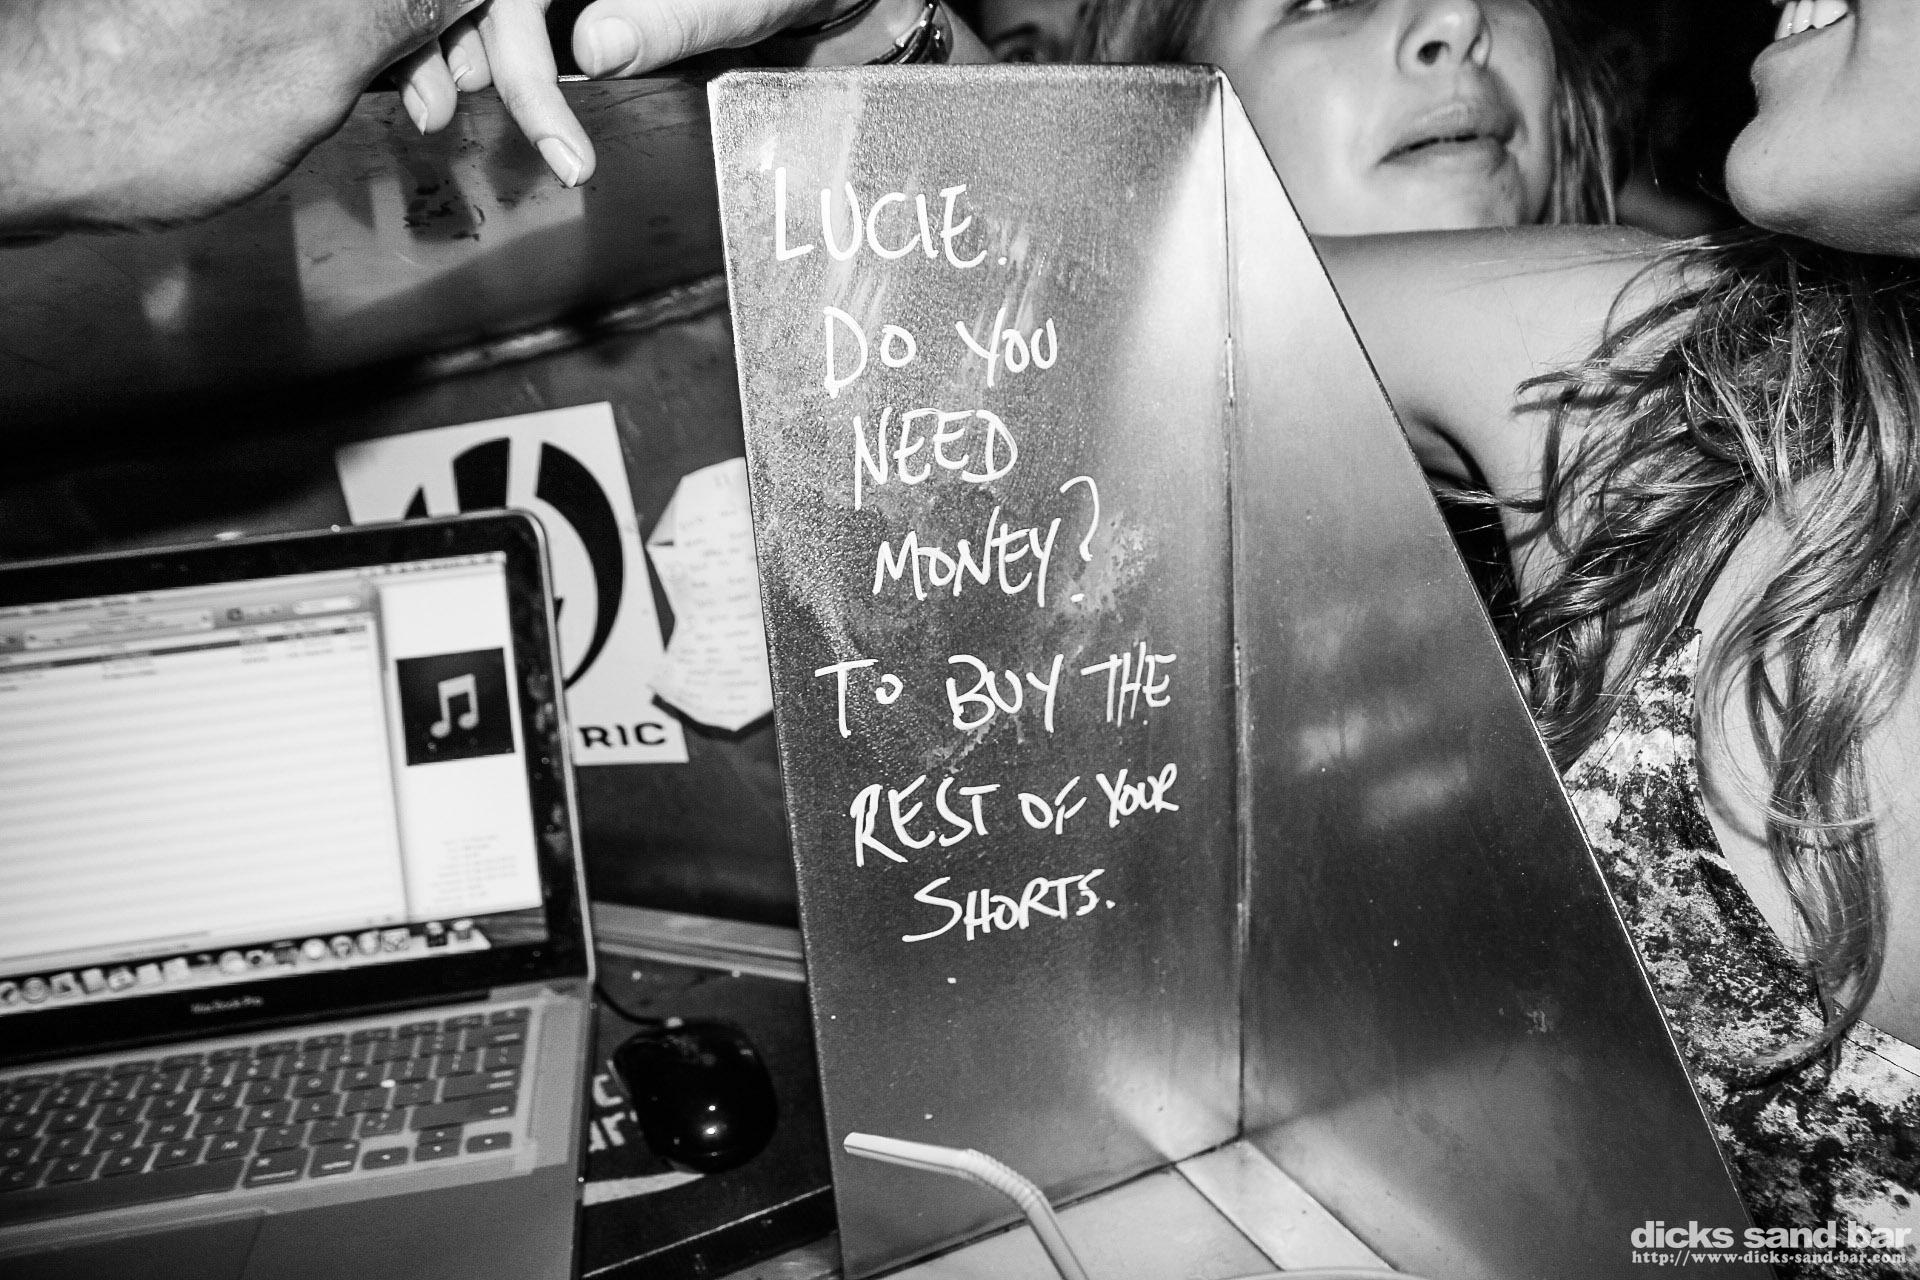 LUCIE.
DO YOU
NEED
MONEY?
TO BUY THE
REST OF YOUR
SHORTS.
RIC
MacBook Pro
dicks sand bar
http://www-dicks-sand-bar.com